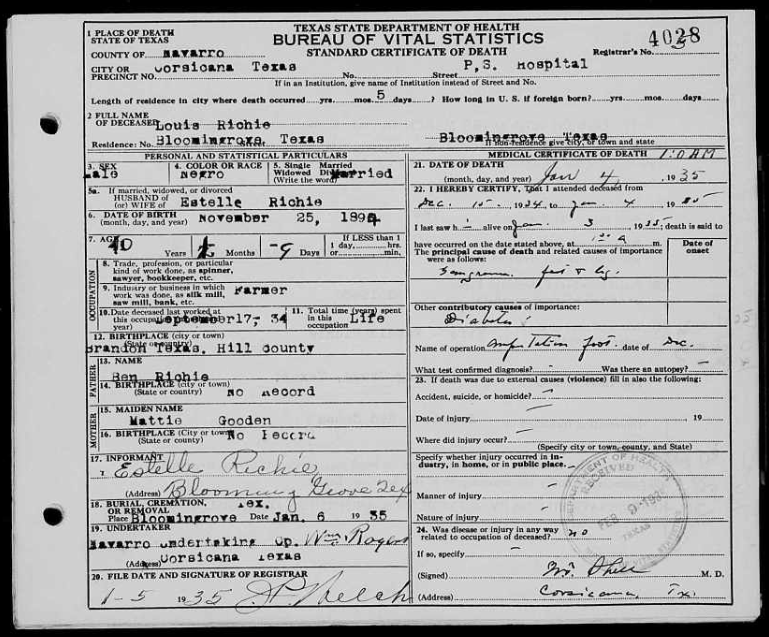 TEXAS STATE DEPARTMENT OF HEALTH
BUREAU OF VITAL STATISTICS
STANDARD CERTIFICATE OF DEATH
1 PLACE OF DEATH
STATE OF TEXAS
COUNTY OF Navarro
Registrar's No.
CITY OR PRECINCT NO. Corsicana Texas No. Street P,S. Hospital
If in an Institution, give name of Institution instead of Street and No.
Length of residence in city where death occurred yrs. mos. 5 days ? How long in U. S. if foreign born? yrs. mos. days
2 FULL NAME OF DECEASED Louis Richie
Residence: No. Bloomingrove, Texas Bloomingrove Texas
If non-residence give city, or town and state
PERSONAL AND STATISTICAL PARTICULARS
3. SEX Male
4. COLOR OR RACE Negro
5. Single Married Widowed Divorced (Write the word) Married
5a. If married, widowed, or divorced
HUSBAND OF (or) WIFE OF Estelle Richie
6. DATE OF BIRTH (month, day, and year) November 25, 1894
7. AGE 40 Years Months 9 Days
If LESS than 1 1 day, hrs. or min.
OCCUPATION
8. Trade, profession, or particular kind of work done, as spinner, sawyer, bookkeeper, etc.
9. Industry or business in which work was done, as silk mill, saw mill, bank, etc. Farmer
10. Date deceased last worked at this occupation (month and year) September 17- 34
11. Total time (years) spent in this occupation Life
12. BIRTHPLACE (city or town) (State or country) Brandon Texas, Hill County
FATHER
13. NAME Ben Richie
14. BIRTHPLACE (city or town) (State or country) No Record
MOTHER
15. MAIDEN NAME Mattie Gooden
16. BIRTHPLACE (City or town) (State or country) No Record
17. INFORMANT Estelle Richie
(Address) Blooming Grove Tex
18. BURIAL, CREMATION, OR REMOVAL Tex.
Place Bloomingrove Date Jan. 6 1935
19. UNDERTAKER
Navarro Undertaking Co. Wm. Rogers
(Address) Corsicana Texas
20. FILE DATE AND SIGNATURE OF REGISTRAR
1-5 1935 Welch
MEDICAL CERTIFICATE OF DEATH 1:0 AM
21. DATE OF DEATH (month, day, and year) Jan 4, 1935
22. I HEREBY CERTIFY, That I attended deceased from
Dec. 15, 1934 to Jan. 4, 1935
I last saw h alive on Jan. 3 1935; death is said to
have occurred on the date stated above, at m.
The principal cause of death and related causes of importance were as follows: Date of onset
Gangrene foot & leg.
Other contributory causes of importance:
Diabetes
Name of operation Amputation foot. date of Dec.
What test confirmed diagnosis? - Was there an autopsy? -
23. If death was due to external causes (violence) fill in also the following:
Accident, suicide, or homicide?
Date of injury 19
Where did injury occur?
(Specify city or town, county, and State)
Specify whether injury occurred in industry, in home, or in public place.
Manner of injury
Nature of injury
24. Was disease or injury in any way related to occupation of deceased? no
If so, specify
(Signed) M. D.
(Address) Corsicana, Tx.
DEPARTMENT OF HEALTH
RECEIVED
FEB 9
TEXAS